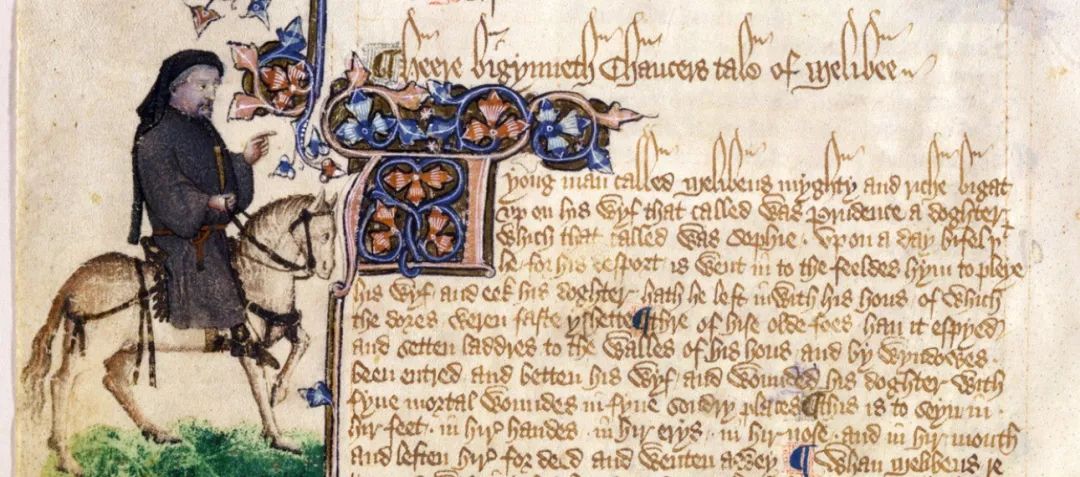 ¶ Heere bigynneth Chaucers tale of Melibee
A yong man called Melibeus myghty and riche bigat
vp on his wyf that called was Prudence a doghter
which that called was Sophie · vpon a day bifel yt
he for his desport is went in to the feeldes hym to pleye
his wyf and eek his doghter hath he left inwith his hous of which
the dores weren faste yshette ¶ thre of hise olde foes han it espyed
and setten laddres to the walles of his hous and by wyndowes
been entred and betten his wyf and wounded his doghter with
fyue mortal woundes in fyue sondry places ¶ this is to seyn in
hir feet · in hir handes · in hir erys · in hir nose · and in hir mouth
and leften hir for deed and wenten awey ¶ Whan Melibeus re